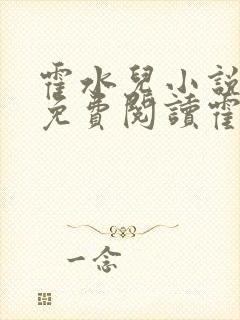 霍水兒小說
免費閱讀霍
一念